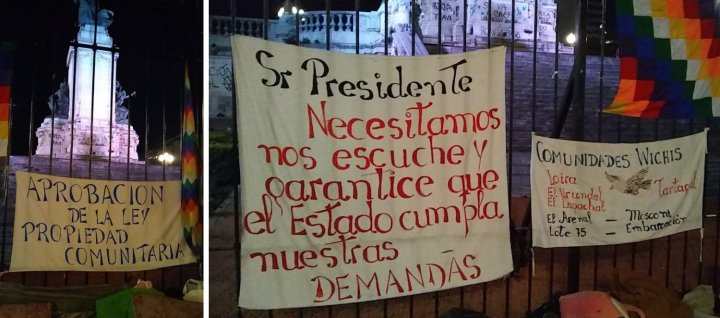 APROBACION
DE LA LEY
PROPIEDAD
COMUNITARIA
Sr Presidente
Necesitamos
nos escuche y
garantice que
el Estado cumpla
nuestras
DEMANDAS
COMUNIDADES WICHIS
Loira
Tartagal
El Arenal - Mosconi
Lote 75 - Embarcación